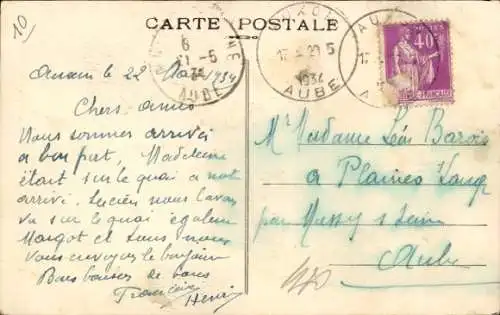 10
CARTE POSTALE
6
-5
34
AUBE
17
29 5
1934
AUBE
17
40
POSTES
FRANÇAISE
le 22 1934
Chers amis
Nous sommes arrivés
a bon port, Madeleine
était sur le quai a not
arrivé. Lucien nous l'avons
vu sur le quai égalem
Margot et tous nous
Vous envoyons le bonjour
Bons baisers de tous
Henri
Mr Madame Léon Barois
a Plaines
par Mussy s Seine
Aube